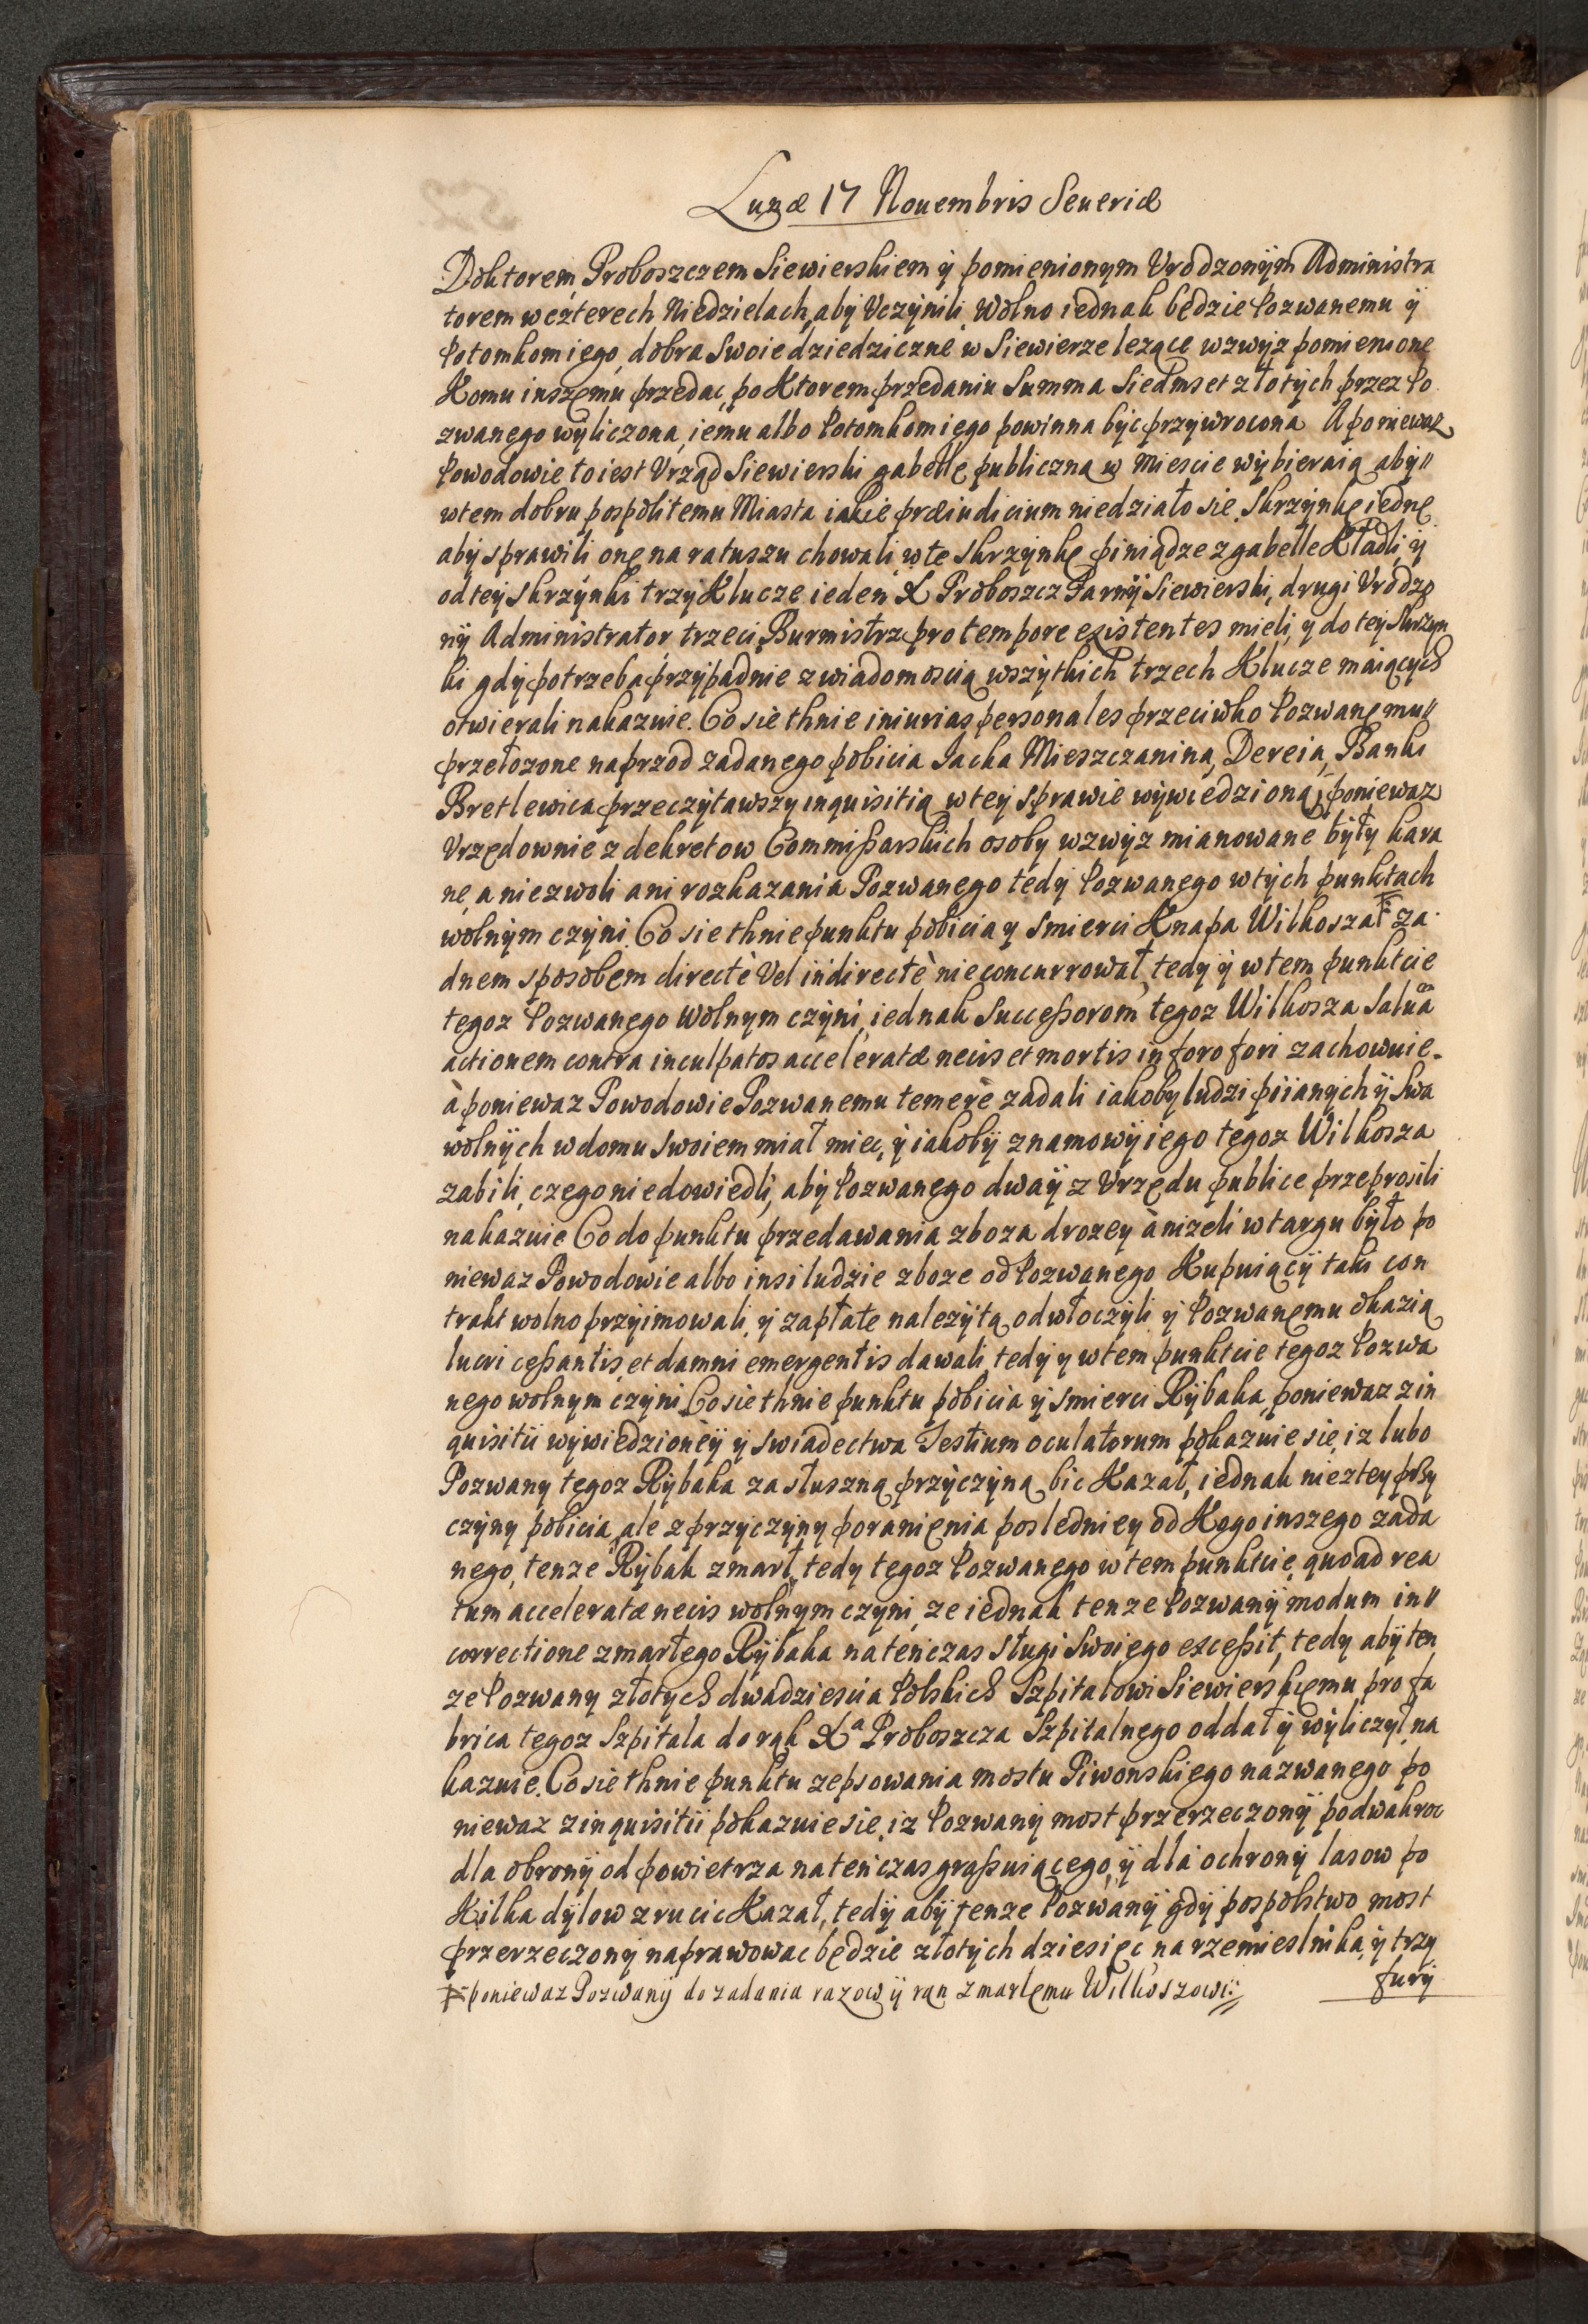 Lunæ 17 Nouembris Seueriæ
Doktorem Proboszczem Siewierskiem ÿ pomienionym Vrodzonÿm Administra
torem w czterech Niedzielach, abÿ Vczÿnili. Wolno iednak będzie Pozwanemu ÿ
Potomkom iego, dobra Swoie dziedziczne w Siewierze lezące wzwÿz pomienione
Komu inszemu przedac, po Ktorem przedaniu Summa Siedmset złotÿch przez Po
zwanego wÿliczona, iemu albo Potomkom iego powinna bÿc przÿwrocona A poniewaz
Powodowie to iest Vrząd Siewierski gabellę publiczną w Miescie wÿbieraią abÿ //
w tem dobru pospolitemu Miasta iakie præiudicium niedziało się. Skrzÿnkę iednę
abÿ sprawili onę na ratuszu chowali, w te skrzÿnkę piniądze z gabelle Kładli, ÿ
od teÿ skrzÿnki trzÿ Klucze ieden X Proboszcz Farnÿ Siewierski, drugi Vrodzo
nÿ Administrator, trzeci Burmistrz pro tempore existentes mieli, ÿ do teÿ Skrzÿn
ki gdÿ potrzeba przÿpadnie z wiadomoscią wszÿtkich trzech Klucze maiącÿch
otwierali nakazuie. Co sie tknie iniurias personales przeciwko Pozwanemu //
przełozone naprzod zadanego pobicia Jacka Mieszczanina, Dereia, Banki
Bretlewica przeczÿtawszy inquisitią w teÿ sprawie wÿwiedzioną, poniewaz
Vrzędownie z dekretow Commißarskich osoby wzwÿz mianowane bÿły kara
ne, a nie z woli ani rozkazania Pozwanego tedÿ Pozwanego w tÿch punktach
wolnÿm czÿni. Co sie tknie punktu pobicia y smierci Knapa Wilkosza # za
dnem sposobem directè Vel indirectè nie concurrował, tedy ÿ w tem punkcie
tegoz Pozwanego Wolnym czÿni, iednak Succeßorom tegoz Wilkosza Saluã
actionem contra inculpatos acceleratæ necis et mortis in foro fori zachowuie.
à poniewaz Powodowie Pozwanemu temerè zadali iakoby ludzi piianÿch ÿ Swa
wolnÿch w domu Swoiem miał miec, ÿ iakobÿ z namowÿ iego tegoz Wilkosza
zabili, czego nie dowiedli, abÿ Pozwanego dwaÿ z Vrzędu publice przeprosili
nakazuie Co do punktu przedawania zboza drozey ànizeli w targu bÿło po
niewaz Powodowie albo insi ludzie zboze od Pozwanego Kupuiącÿ taki con
trakt wolno przÿimowali, ÿ zapłatę nalezÿtą odwłoczÿli ÿ Pozwanemu okazią
lucri ceßantis, et damni emergentis dawali, tedÿ y w tem punkcie tegoz Pozwa
nego wolnym czÿni Co sie tknie punktu pobicia ÿ smierci Rÿbaka, poniewaz z in
quisitii wÿwiedzionèÿ ÿ swiadectwa Testium oculatorum pokazuie się iz lubo
Pozwany tegoz Rÿbaka za słuszną przÿczÿną bic Kazał, iednak nie z tey przy
czÿny pobicia, ale z przÿczÿny poranienia posledniey od Kogo inszego zada
nego, tenze Rÿbak zmarł, tedy tegoz Pozwanego w tem punkcie, quoad rea
tum acceleratæ necis wolnÿm czyni, ze iednak tenze Pozwanÿ modum in //
correctione zmarłego Rÿbaka na tenczas sługi Swoiego exceßit, tedy abÿ ten
ze Pozwany złotych dwadziescia Polskich Szpitalowi Siewierskiemu pro fa
brica tegoz Szpitala do rąk Xa Proboszcza Szpitalnego oddał ÿ wÿliczÿł, na
kazuie. Co sie tknie punktu zepsowania mostu Piwonskiego nazwanego po
niewaz z inquisitii pokazuie się, iz Pozwanÿ most przerzeczonÿ po dwakroc
dla obronÿ od powietrza na tenczas graßuiącego, ÿ dla ochronÿ lasow po
Kilka dÿlow zrucic Kazał, tedÿ abÿ tenze Pozwanÿ gdÿ pospolstwo most
przerzeczonÿ naprawowac będzie złotÿch dziesięc na rzemieslnika, ÿ trzy
# poniewaz Pozwanÿ do zadania razow ÿ ran zmarłemu Wilkoszowi:
furÿ